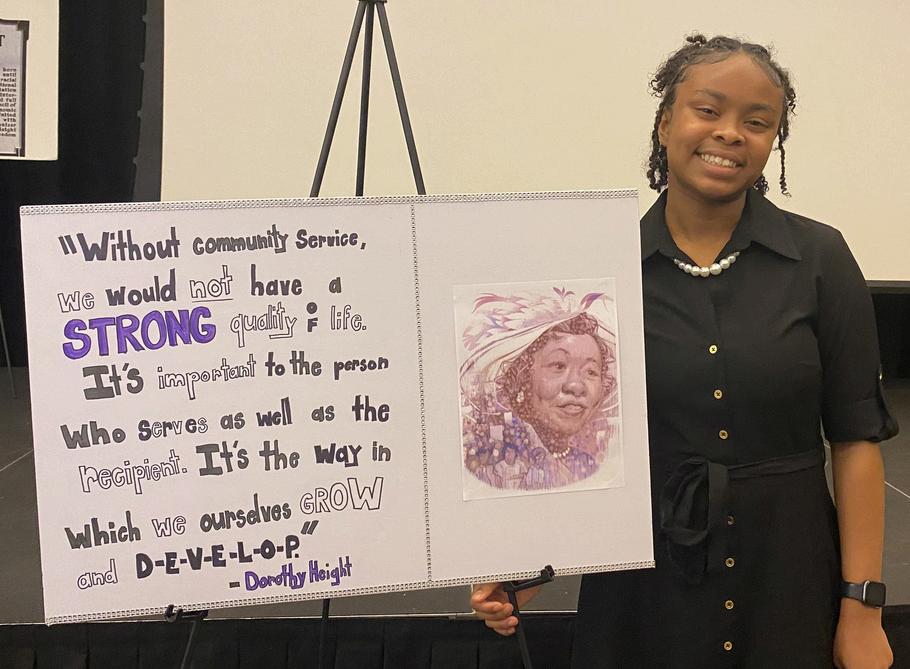 "Without community Service,
we would not have a
STRONG quality OF life.
It's important to the person
Who serves as well as the
recipient. It's the way in
Which we ourselves GROW
and D-E-V-E-L-O-P."
- Dorothy Height